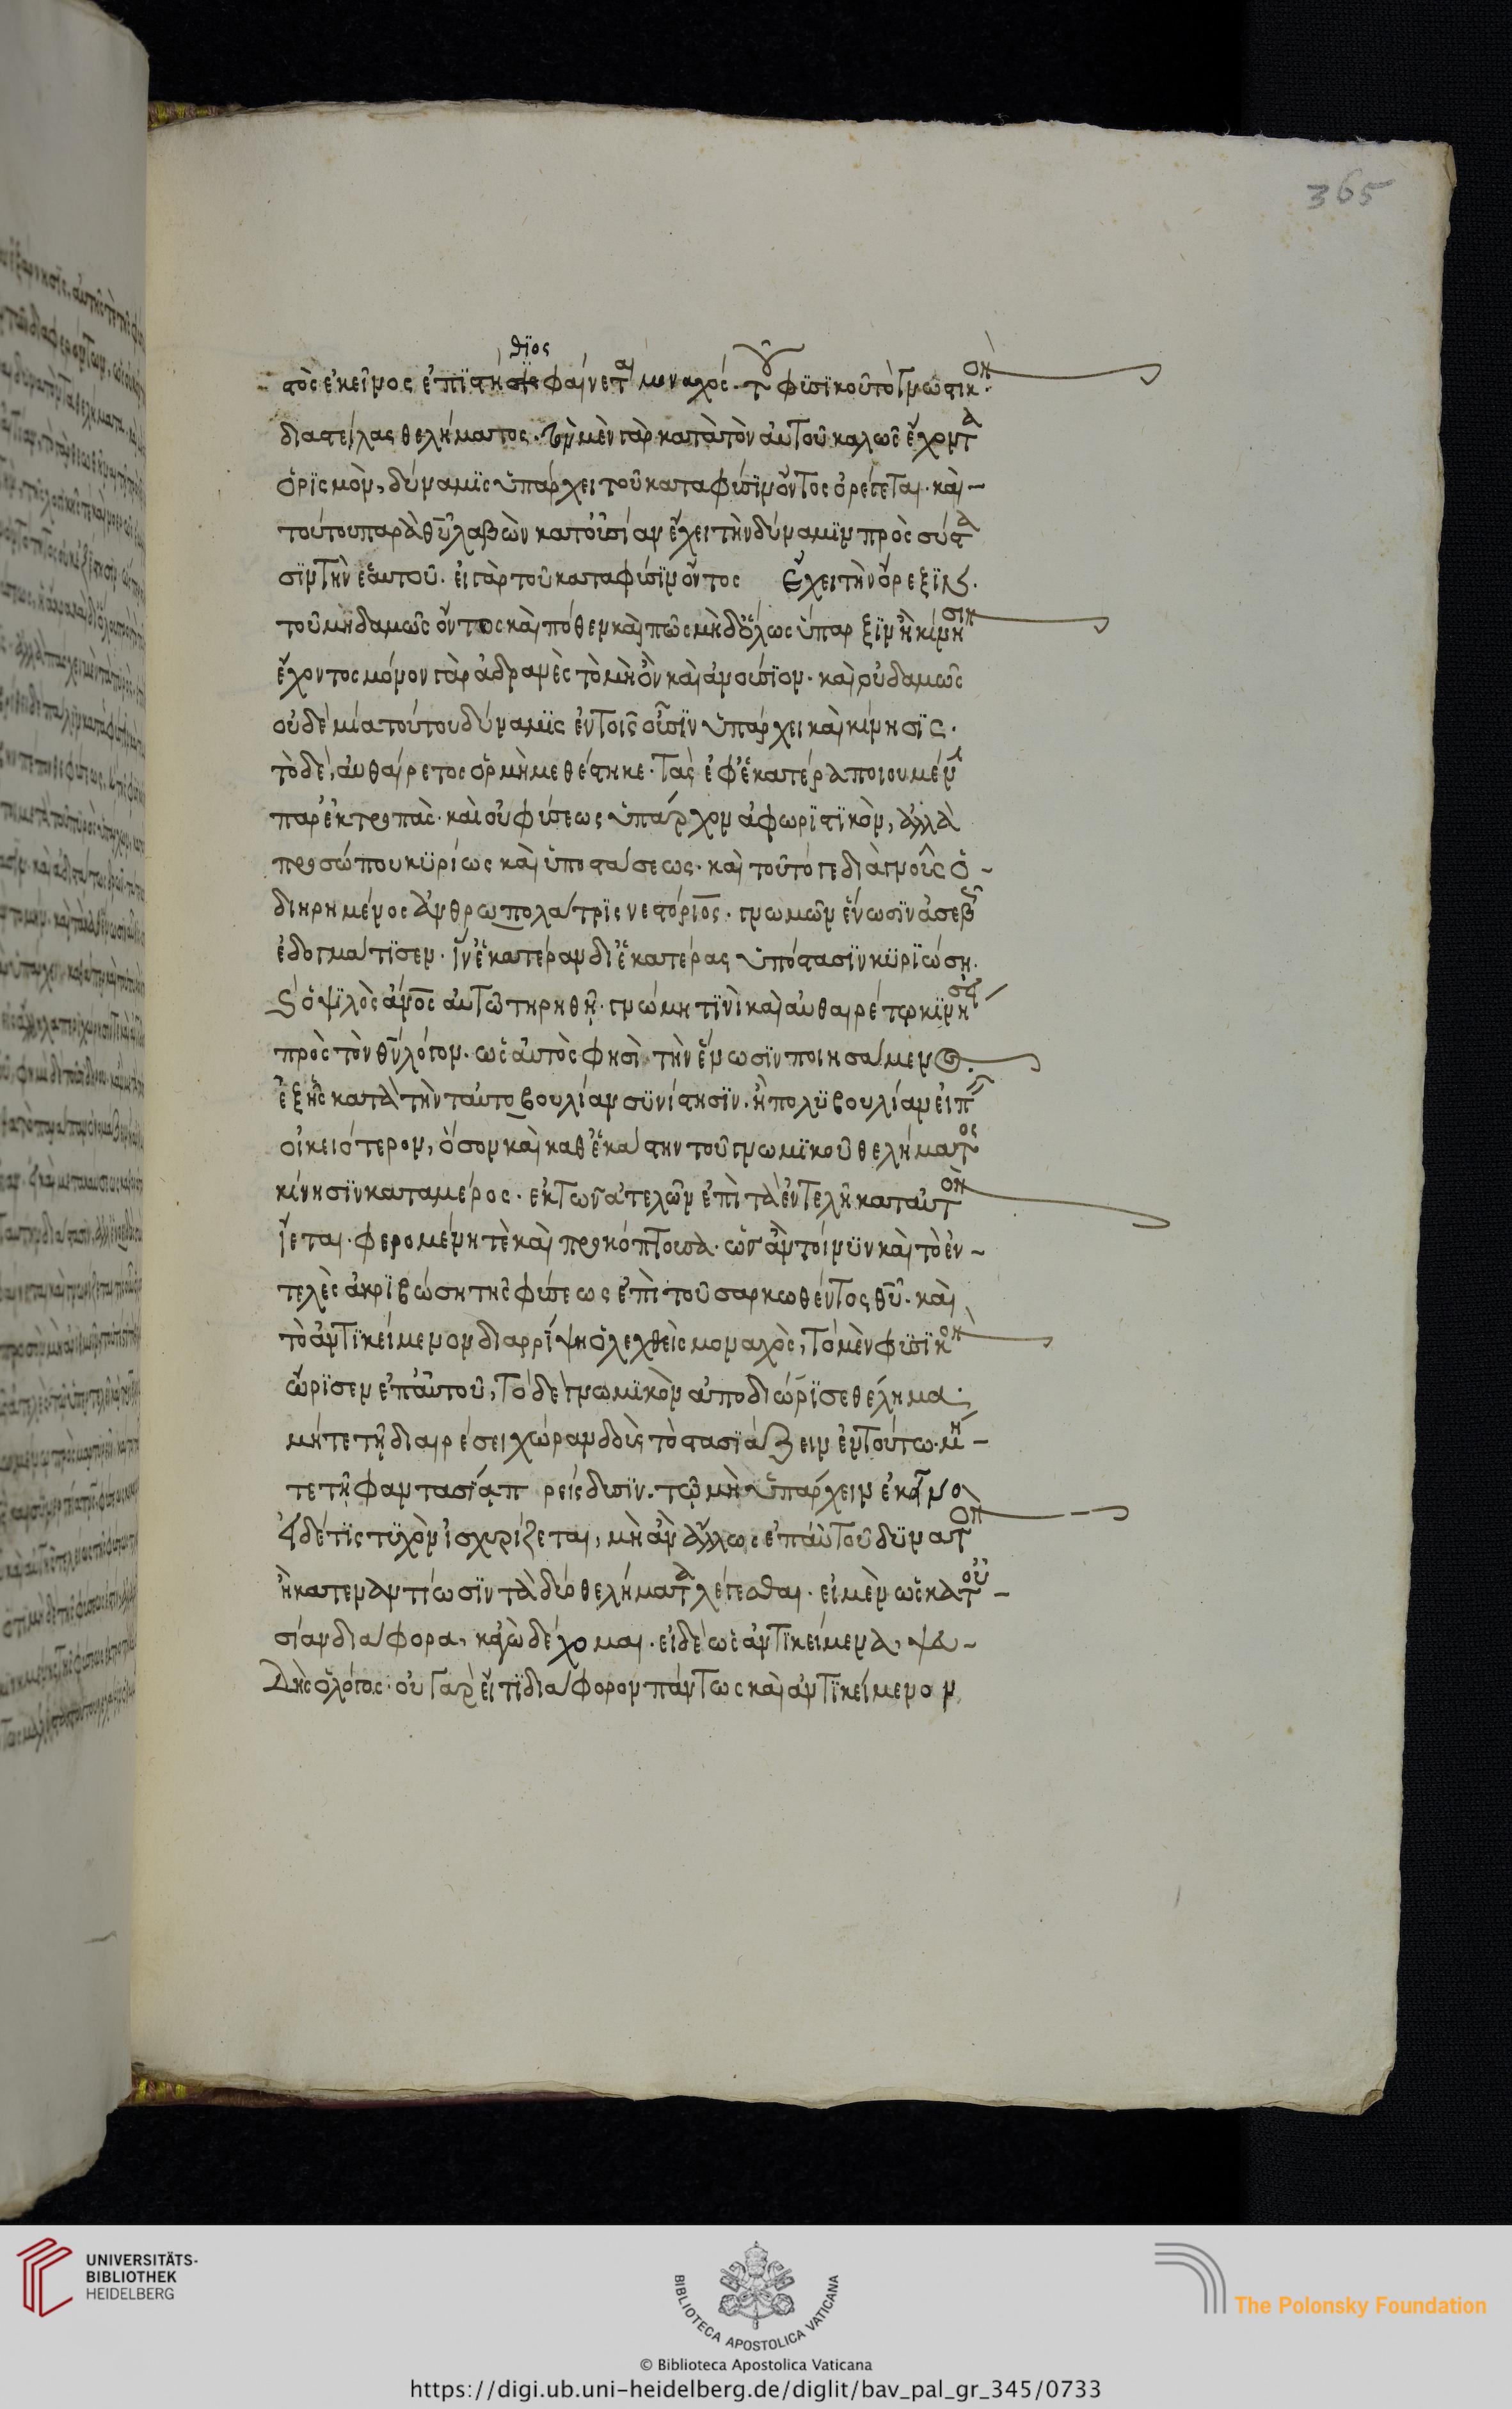 365
θϊος
τὸς ἐκεῖνος ἐπϊστήστϊε φαίνεται μοναχός. τοῦ φϋσϊκοῦ τὸ γνωστικὸν
διαστείλας θελήματος. τὴν μὲν γὰρ κατὰ τὸν αὐτοῦ καλῶς ἔχοντα
ὅρϊσμὸν, δύναμϊς ὑπάρχει τοῦ κατα φύσϊν ὄντος ὀρέγεται. καὶ
τούτου παρὰ θῦ λαβὼν κατ οὐσίαν ἔχει τὴν δύναμϊν πρὸς σύστα
σϊν τὴν ἑαυτοῦ. εἰ γὰρ τοῦ κατα φύσϊν ὄντος ἔχει τὴν ὄρεξϊν.
τοῦ μὴδαμῶς ὄντος καὶ πόθεν καὶ πῶς μὴδόλως ὑπαρξϊν ἢ κίνησιν
ἔχοντος μόνον γὰρ ἀδρανὲς τὸ μὴ ὂν καὶ ἀνούσϊον. καὶ οὐδαμῶς
οὐδὲ μία τούτου δύναμϊς ἐν τοῖς οὖσϊν ὑπάρχει καὶ κίνησϊς.
τὸ δὲ, αὐθαίρετος ὁρμὴ μεθέστηκε. τὰς ἐφ ἑκατέρα ποιουμέν
παρ ἐκτροπὰς. καὶ οὐ φύσεως ὑπάρχον ἀφωρϊστϊκὸν, ἀλλὰ
προσώπου κϋρίως καὶ ὑποστάσεως. καὶ τοῦτό γε διαγνοὺς ὁ
διηρημένος ἀνθρωπολάτρϊς νεστόριος. γνωμῶν ἕνωσϊν ἀσεβῶς
ἐδογμάτϊσεν. ἵν ἑκατέραν δι ἑκατέρας ὑπόστασϊν κϋρϊώση.
καὶ ὁ ψϊλὸς ἄνος αὐτῶ τηρηθῆ. γνώμη τϊνὶ καὶ αὐθαιρέτω κϊνήσει
πρὸς τὸν θν λόγον. ὡς αὐτὸς φησὶ τὴν ἕνωσϊν ποιησάμενος.
ἑξῆς κατὰ τὴν ταὐτοβουλίαν σϋνίστησϊν. ἢ πολϋβουλίαν εἰπεῖν
οἰκειότερον, ὅσον καὶ καθ ἑκάστην τοῦ γνωμϊκοῦ θελήματος
κίνησϊν καταμέρος. ἐκ τῶν ἀτελῶν ἐπὶ τὰ ἐντελῆ κατ αὐτὸν
ἵεται. φερομένη τὲ καὶ προκόπτουσα. ὡς ἂν τοίνϋν καὶ τὸ ἐν
τελὲς ἀκρϊβώση τῆς φύσεως ἐπὶ τοῦ σαρκωθέντος θῦ. καὶ
τὸ ἀντϊκείμενον διαρρίψη ὁ λεχθεὶς μοναχὸς, τὸ μὲν φϋσϊκὸν
ὥρϊσεν ἐπ αὐτοῦ, τὸ δὲ γνωμϊκὸν ἀποδιώρϊσε θέλημα.
μήτε τῆ διαιρέσει χώραν δδὶς τὸ στασϊάζειν ἐν τούτω. μή
τε τῆ φαντασία π ρείσδυσϊν. τῶ μὴ ὑπάρχειν ἐκ
εἰ δέ τϊς τϋχὸν ἰσχυρίζεται, μὴ ἂν ἄλλως ἐπ αὐτοῦ δϋνατὸν
ἢ κατ ἐναντίωσϊν τὰ δύο θελήματα λέγεσθαι. εἰ μὲν ὡς κατ οὐ
σίαν διάφορα, κἀγὼ δέχομαι. εἰ δὲ ὡς ἀντϊκείμενα, ψευ
δὴς ὁ λόγος. οὐ γὰρ εἴ τϊ διάφορον πάντως καὶ ἀντϊκείμενον
UNIVERSITÄTS-
BIBLIOTHEK
HEIDELBERG
BIBLIOTECA APOSTOLICA VATICANA
The Polonsky Foundation
© Biblioteca Apostolica Vaticana
https://digi.ub.uni-heidelberg.de/diglit/bav_pal_gr_345/0733